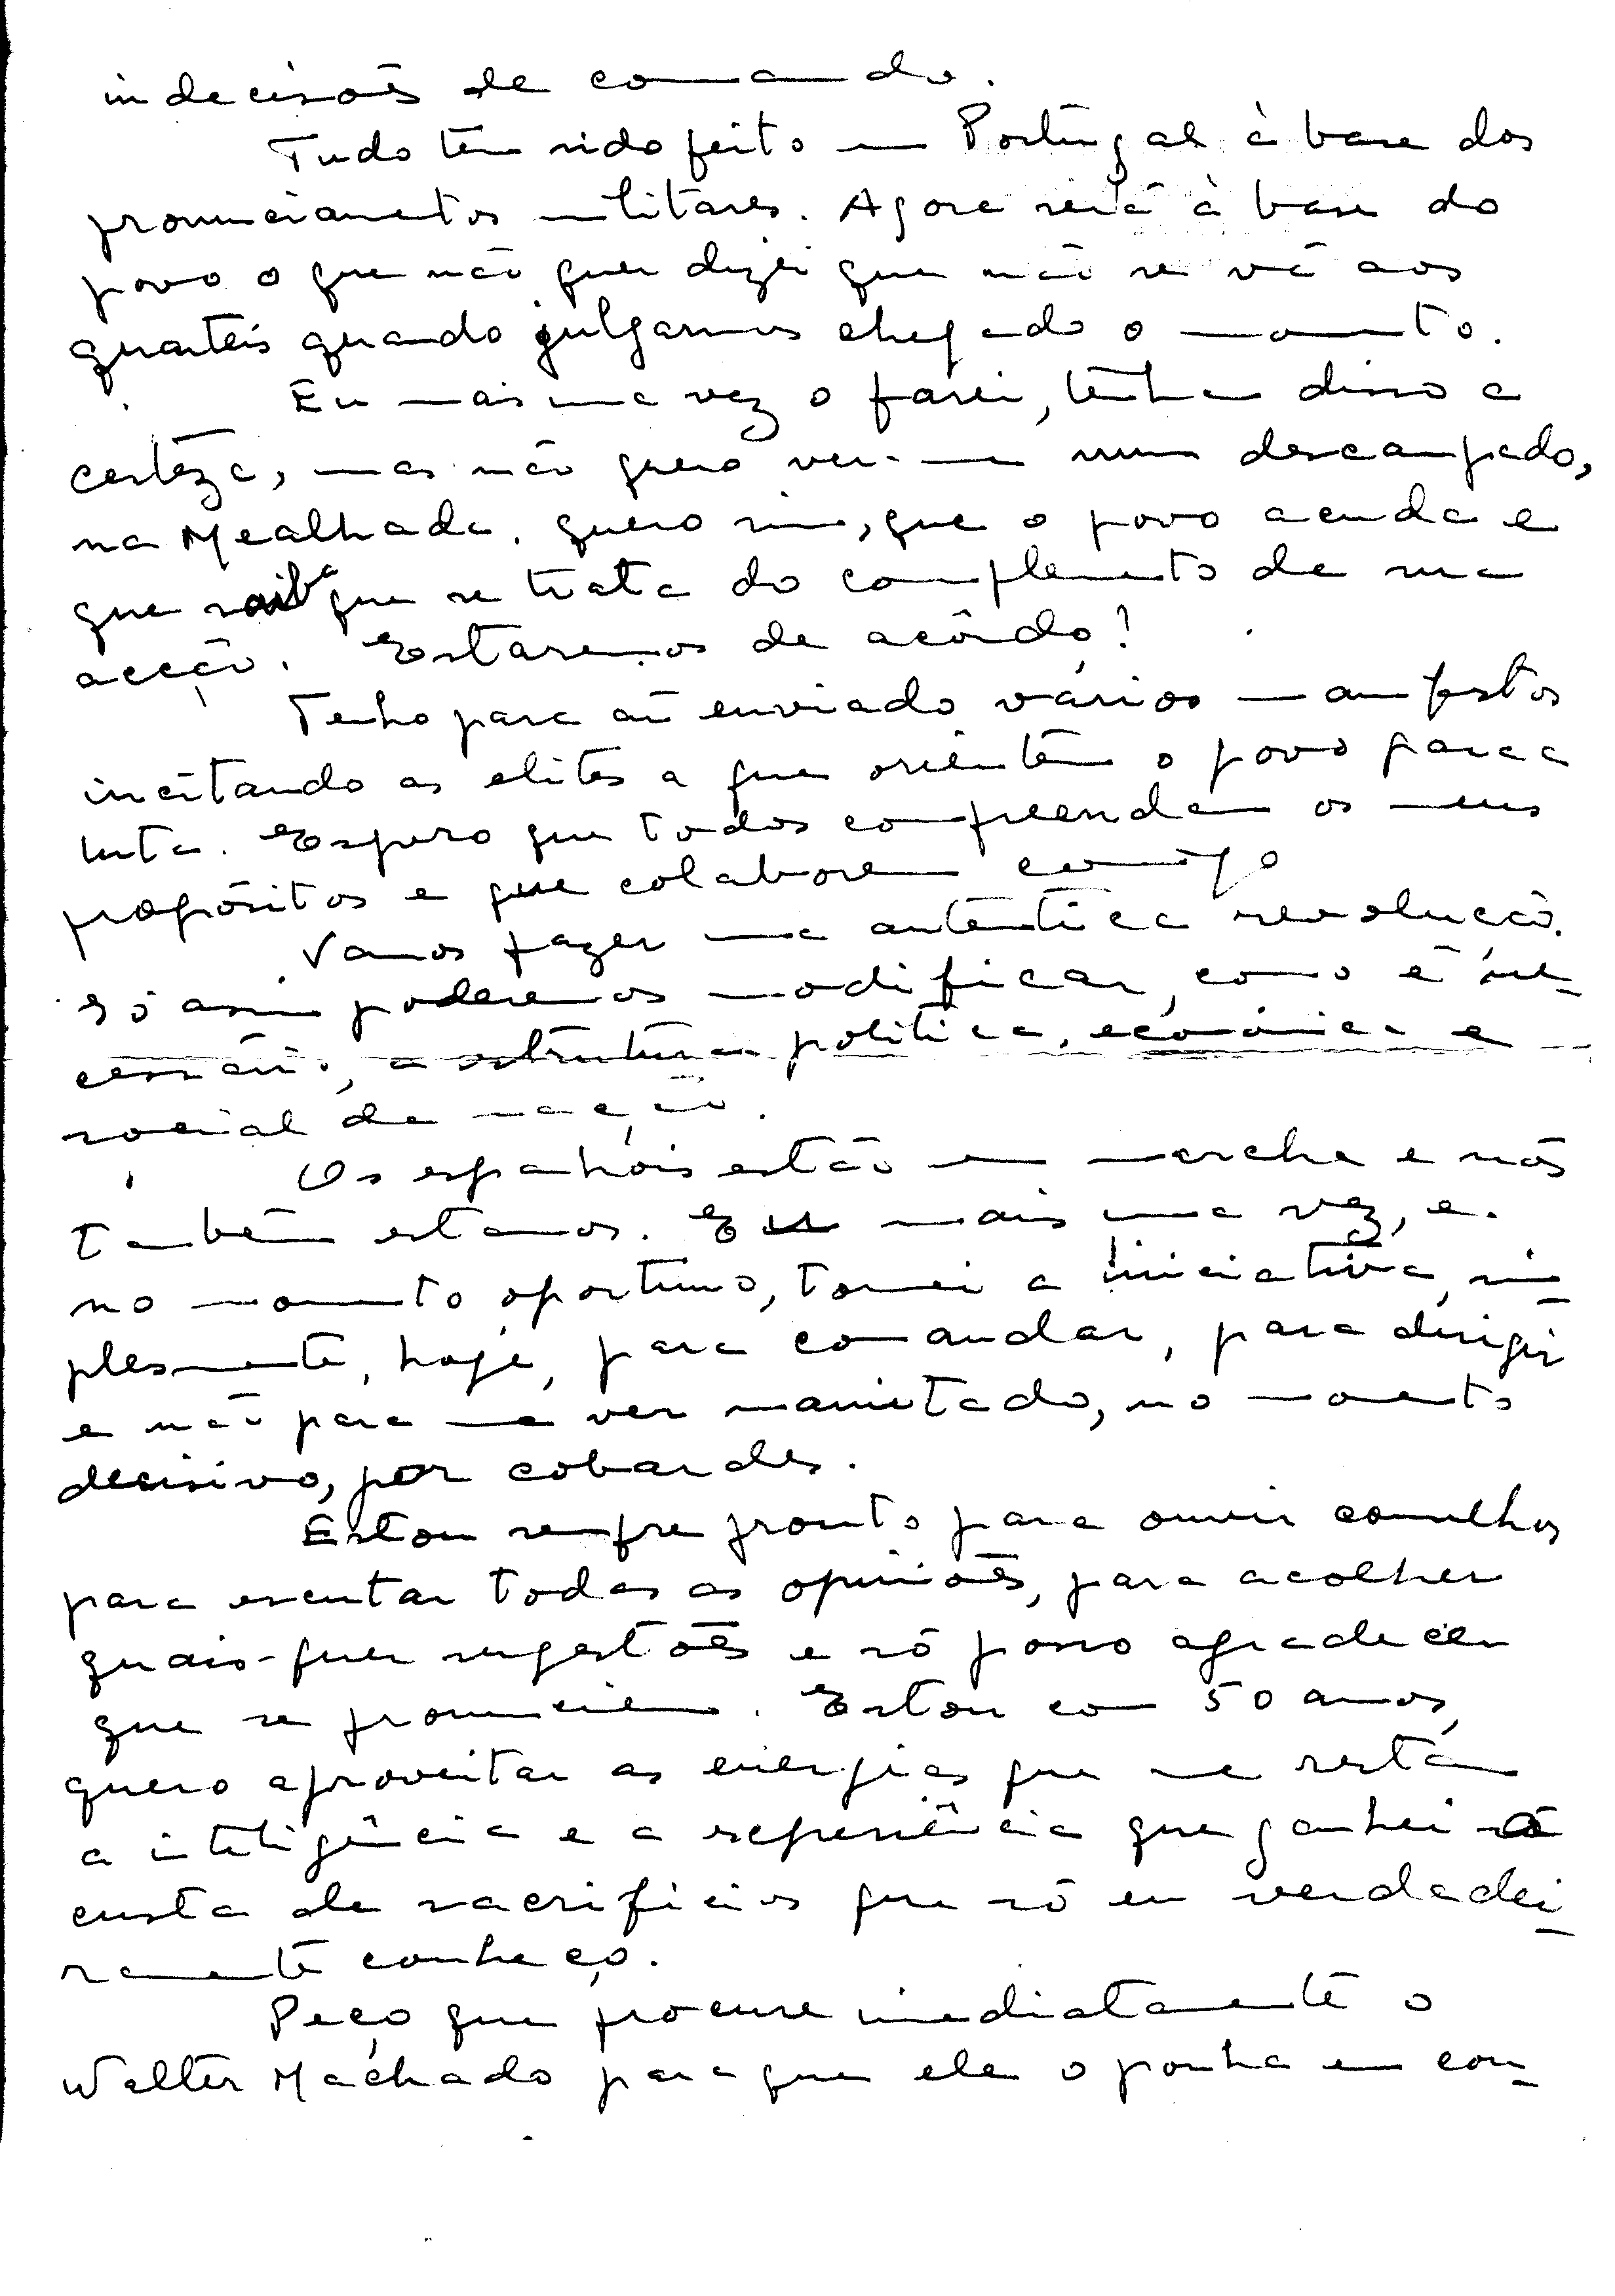 indecisões de comando.
Tudo tem sido feito em Portugal à base dos
pronunciamentos militares. Agora será à base do
povo o que não quer dizer que não se vá aos
quarteis quando julgarmos chegado o momento.
Eu mais uma vez o farei, tenham disso a
certeza, mas não quero ver-me num descampado,
na Mealhada. quero sim, que o povo acuda e
que saiba que se trata do complemento de uma
acção. Estaremos de acôrdo?
Tenho para aí enviado vários manifestos
incitando as elites a que orientem o povo para a
luta. Espero que todos compreendam os meus
propósitos e que colaborem comigo
Vamos fazer uma autêntica revolução.
Só assim poderemos modificar, como é ne-
cessário, a estrutura política, económica e
social da nação.
Os espanhóis estão em marcha e nós
também estamos. Eu mais uma vez, e
no momento oportuno, tomei a iniciativa, sim-
plesmente, hoje, para comandar, para dirigir
e não para me ver manietado, no momento
decisivo, por cobardes.
Estou sempre pronto para ouvir conselhos
para escutar todas as opiniões, para acolher
quais-quer sugestões e só posso agradecer
que se pronunciem. Estou com 50 anos,
quero aproveitar as energias que me restam
a inteligência e a experiência que ganhei à
custa de sacrifícios que só eu verdadei-
ramente conheço.
Peço que procure imediatamente o
Walter Machado para que ele o ponha em con-